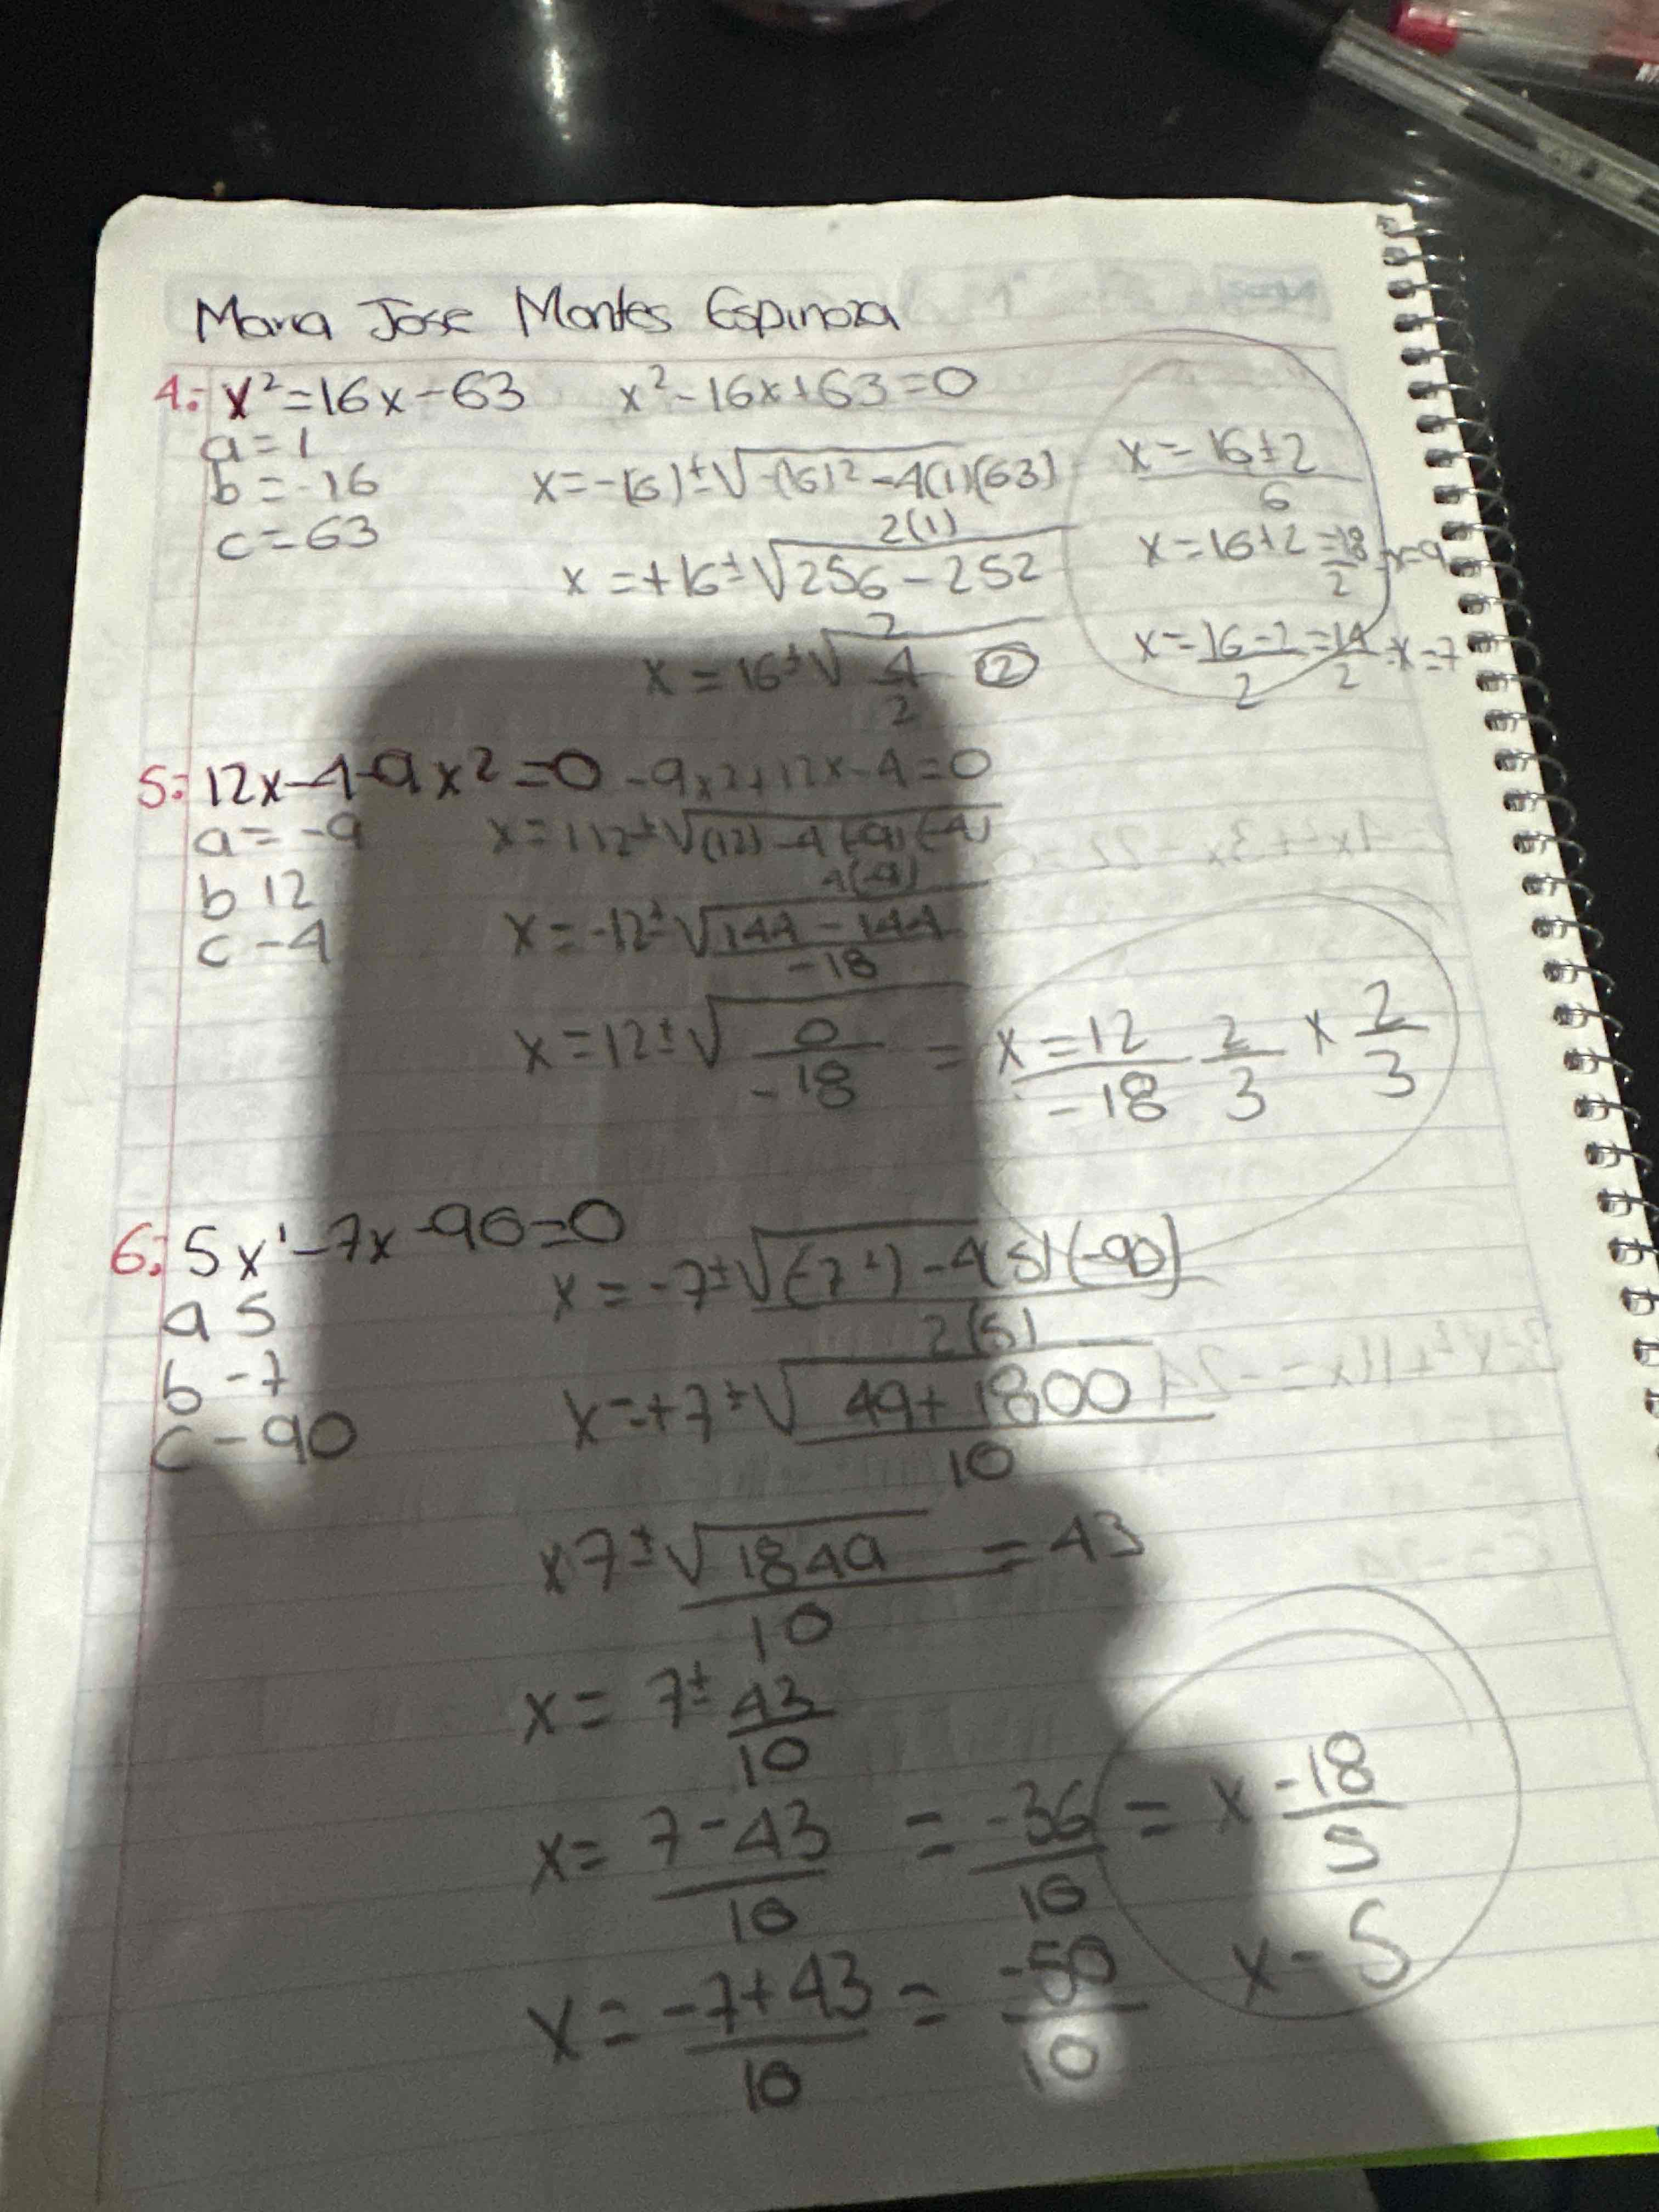 Maria Jose Montes Espinoza
4: x²=16x-63 x²-16x+63=0
a=1
b=-16
c=63
x=-(6)±√-(16)²-4(1)(63)
2(1)
x=+16±√256-252
2
x=16±√4 ②
2
x=16±2
6
x=16+2=18 x=9
2
x=16-2=14 x=7
2 2
5: 12x-4-9x²=0 -9x2+12x-4=0
a=-9
b 12
c -4
x=112±√(12)-4(-9)(-4)
4(-9)
x=-12±√144-144
-18
x=12±√0 = x=12 2 x 2
-18 -18 3 3
6: 5x¹-7x-90=0
a 5
b -7
c -90
x=-7±√(-7²)-4(5)(-90)
2(5)
x=+7±√49+1800
10
x 7±√1849 =43
10
x= 7±43
10
x= 7-43 = -36 = x -18
10 10 5
x= -7+43 = -50 x-5
10 10